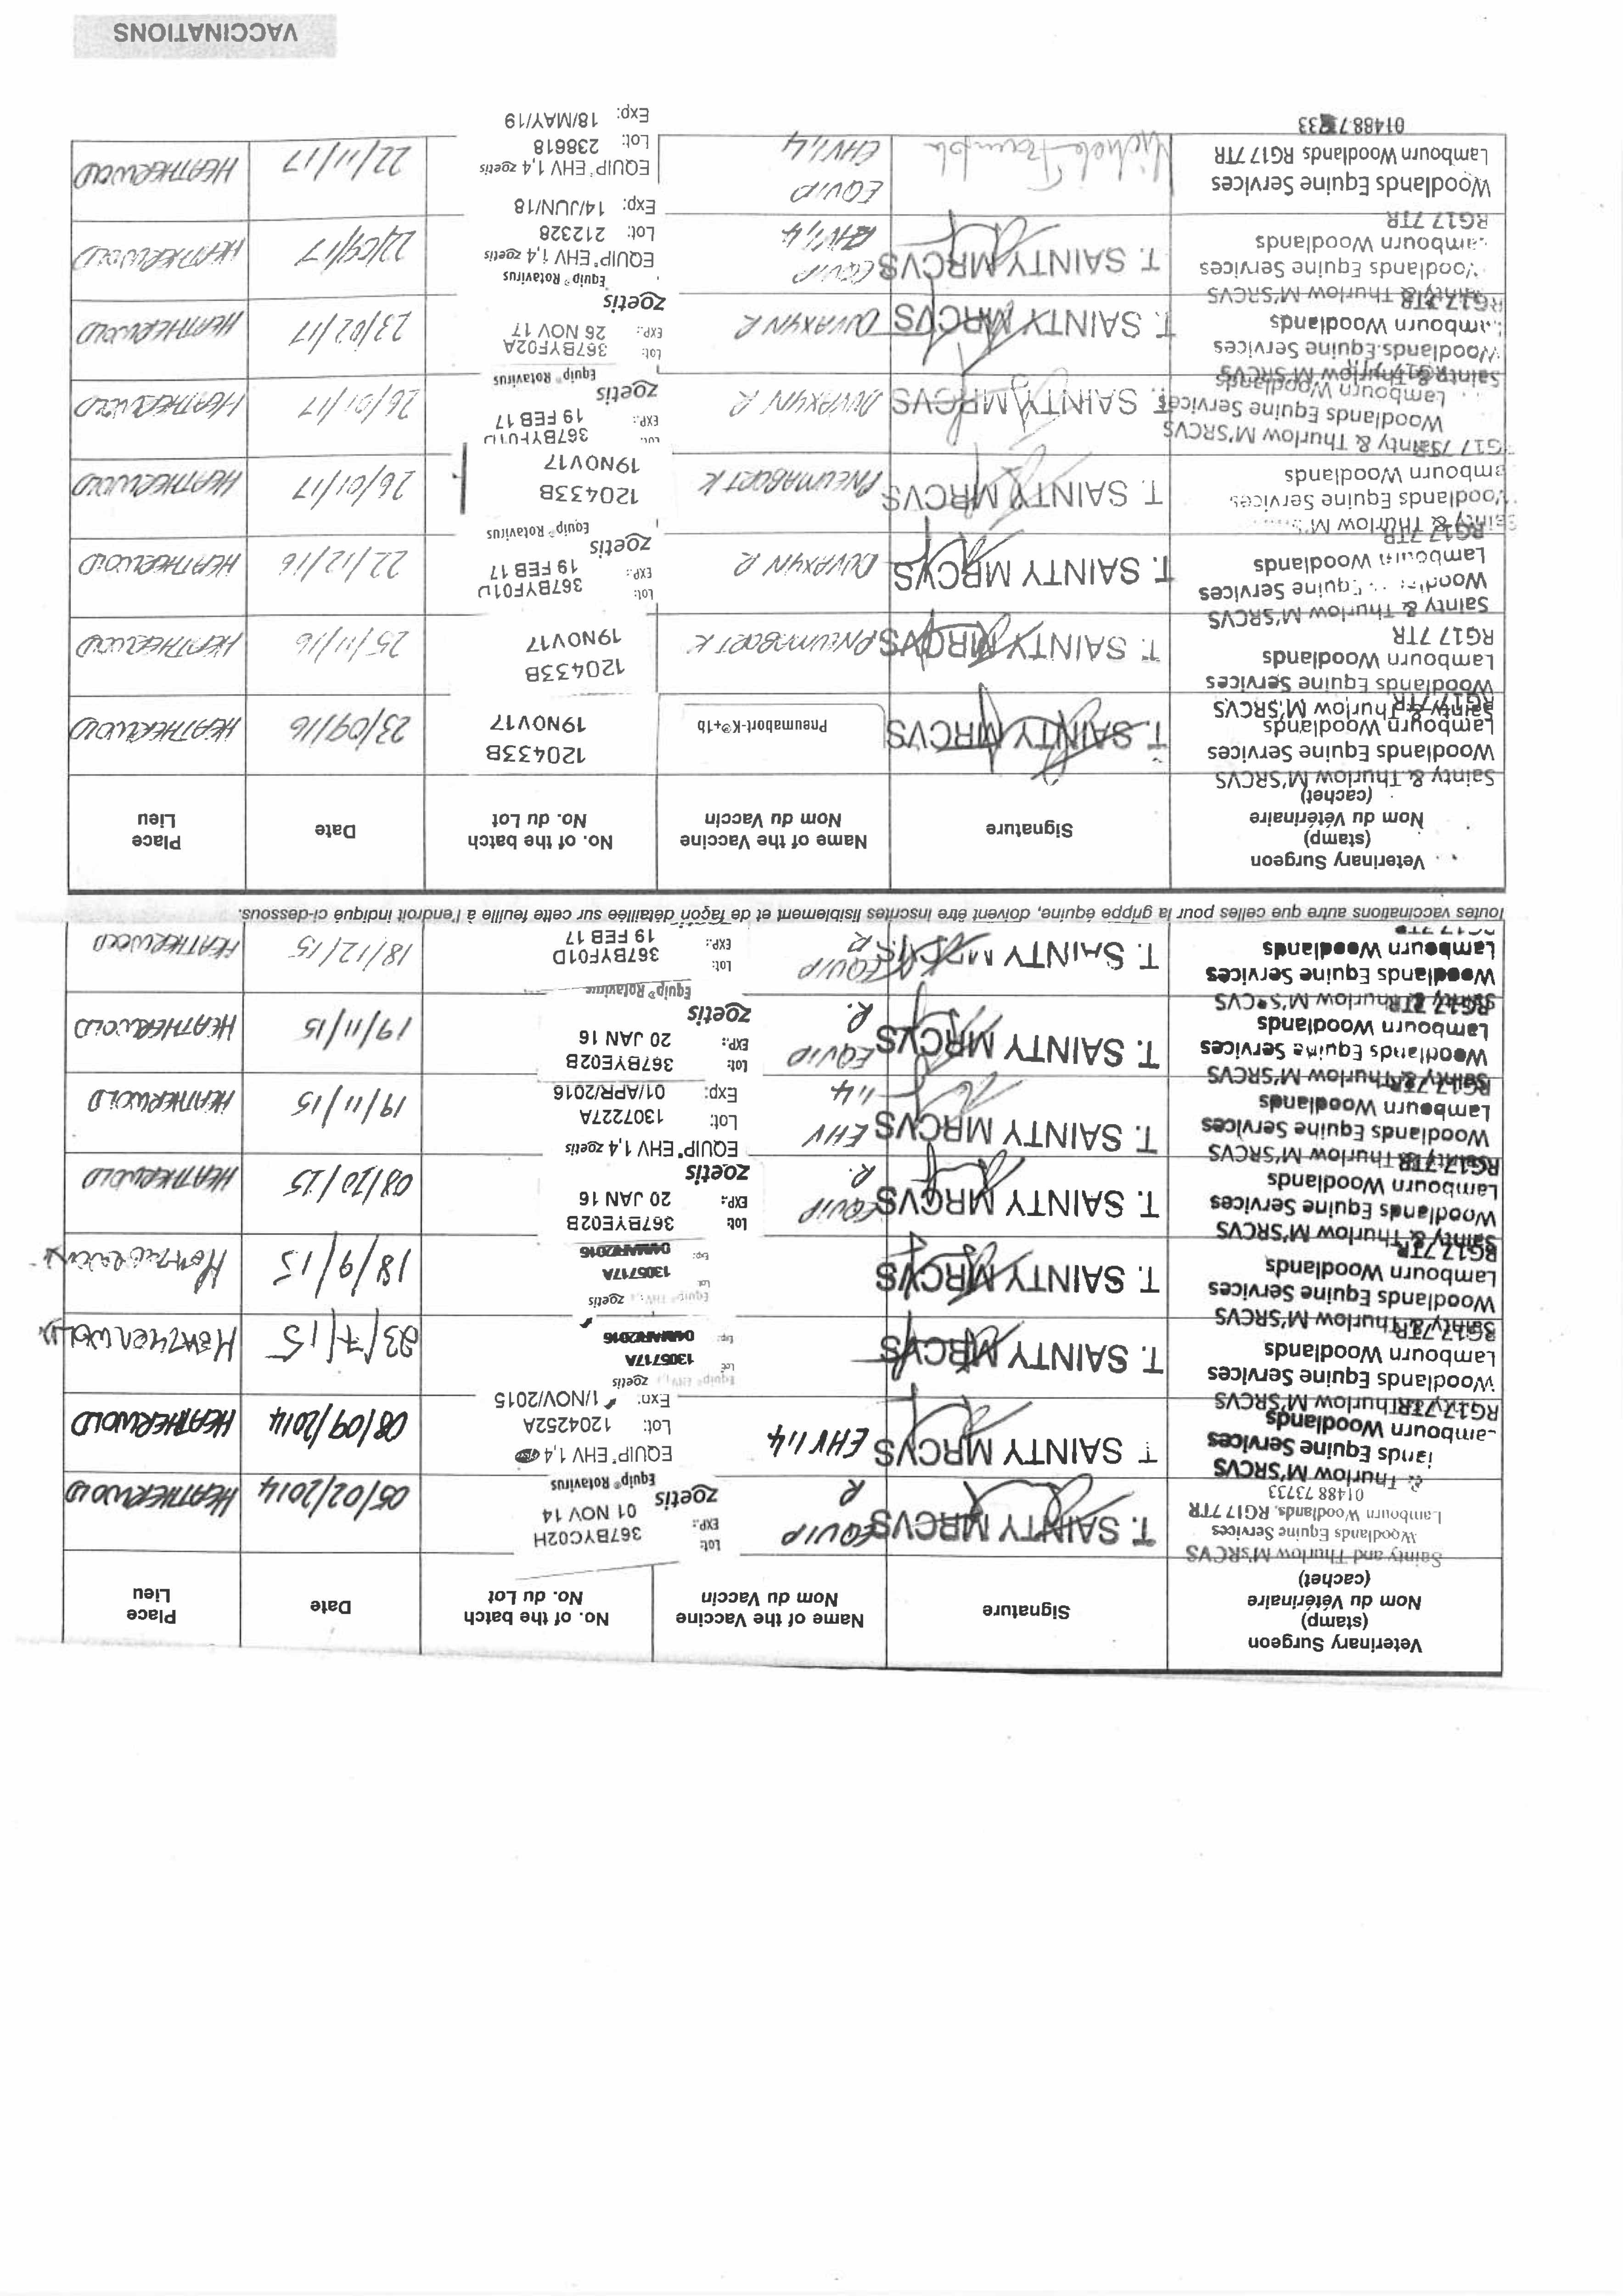 Veterinary Surgeon
(stamp)
Nom du Vétérinaire
(cachet)
Signature
Name of the Vaccine
Nom du Vaccin
No. of the batch
No. du Lot
Date
Place
Lieu
Sainty and Thurlow M'sRCVS
Woodlands Equine Services
Lambourn Woodlands, RG17 7TR
01488 73733
T. SAINTY MRCVS
EQUIP
R
Lot: 367BYC02H
EXP.: 01 NOV 14
zoetis
Equip® Rotavirus
05/02/2014
HEATHERWOLD
& Thurlow M'SRCVS
lands Equine Services
Lambourn Woodlands
RG17 7TR
T SAINTY MRCVS
EHV 1,4
EQUIP® EHV 1,4
Lot: 1204252A
Exp: 1/NOV/2015
08/09/2014
HEATHERWOLD
Sainty & Thurlow M'SRCVS
Woodlands Equine Services
Lambourn Woodlands
RG17 7TR
T. SAINTY MRCVS
zoetis
Lot 130571 7A
Exp: 04MAR2016
23/7/15
HEATHERWOLD
Sainty & Thurlow M'SRCVS
Woodlands Equine Services
Lambourn Woodlands
RG17 7TR
T. SAINTY MRCVS
zoetis
Lot 1305717A
Exp: 04MAR2016
18/9/15
Sainty & Thurlow M'SRCVS
Woodlands Equine Services
Lambourn Woodlands
RG17 7TR
T. SAINTY MRCVS
EQUIP
R.
Lot: 367BYE02B
EXP.: 20 JAN 16
zoetis
08/10/15
HEATHERWOLD
Sainty & Thurlow M'SRCVS
Woodlands Equine Services
Lambourn Woodlands
RG17 7TR
T. SAINTY MRCVS
EHV
1,4
EQUIP® EHV 1,4 zoetis
Lot: 130722 7A
Exp: 01/APR/2016
19/11/15
HEATHERWOLD
Sainty & Thurlow M'SRCVS
Woodlands Equine Services
Lambourn Woodlands
RG17 7TR
T. SAINTY MRCVS
EQUIP
R.
Lot: 367BYE02B
EXP.: 20 JAN 16
zoetis
Equip® Rotavirus
19/11/15
HEATHERWOLD
Sainty & Thurlow M'SRCVS
Woodlands Equine Services
Lambourn Woodlands
T. SAINTY
EQUIP
R
Lot: 367BYF01D
EXP.: 19 FEB 17
18/12/15
HEATHERWOLD
Toutes vaccinations autre que celles pour la grippe équine, doivent être inscrites lisiblement et de façon détaillée sur cette feuille à l'endroit indiqué ci-dessous.
Veterinary Surgeon
(stamp)
Nom du Vétérinaire
(cachet)
Signature
Name of the Vaccine
Nom du Vaccin
No. of the batch
No. du Lot
Date
Place
Lieu
Sainty & Thurlow M'SRCVS
Woodlands Equine Services
Lambourn Woodlands
RG17 7TR
T. SAINTY MRCVS
Pneumabort-K®+1b
120433B
19NOV17
23/09/16
HEATHERWOLD
Sainty & Thurlow M'SRCVS
Woodlands Equine Services
Lambourn Woodlands
RG17 7TR
T. SAINTY MRCVS
PNEUMABORT K
120433B
19NOV17
25/11/16
HEATHERWOLD
Sainty & Thurlow M'SRCVS
Equine Services
Lambourn Woodlands
RG17 7TR
T. SAINTY MRCVS
DUVAXYN R
Lot: 367BYF01D
EXP.: 19 FEB 17
zoetis
Equip® Rotavirus
22/12/16
HEATHERWOLD
Sainty & Thurlow
Woodlands Equine Services
Lambourn Woodlands
RG17 7TR
T. SAINTY MRCVS
PNEUMABORT K
120433B
19NOV17
26/01/17
HEATHERWOLD
Sainty & Thurlow M'SRCVS
Woodlands Equine Services
Lambourn Woodlands
RG17 7TR
T. SAINTY MRCVS
DUVAXYN R
Lot: 367BYF01D
EXP.: 19 FEB 17
zoetis
Equip® Rotavirus
26/01/17
HEATHERWOLD
Sainty & Thurlow M'SRCVS
Woodlands Equine Services
Lambourn Woodlands
RG17 7TR
T. SAINTY MRCVS
DUVAXYN R
Lot: 367BYF02A
EXP.: 26 NOV 17
zoetis
Equip® Rotavirus
23/02/17
HEATHERWOLD
Sainty & Thurlow M'SRCVS
Woodlands Equine Services
Lambourn Woodlands
RG17 7TR
T. SAINTY MRCVS
EQUIP
EHV 1,4
EQUIP® EHV 1,4 zoetis
Lot: 212328
Exp: 14/JUN/18
22/09/17
HEATHERWOLD
Woodlands Equine Services
Lambourn Woodlands RG17 7TR
01488 7 33
EQUIP
EHV 1,4
EQUIP® EHV 1,4 zoetis
Lot: 238618
Exp: 18/MAY/19
22/11/17
HEATHERWOLD
VACCINATIONS